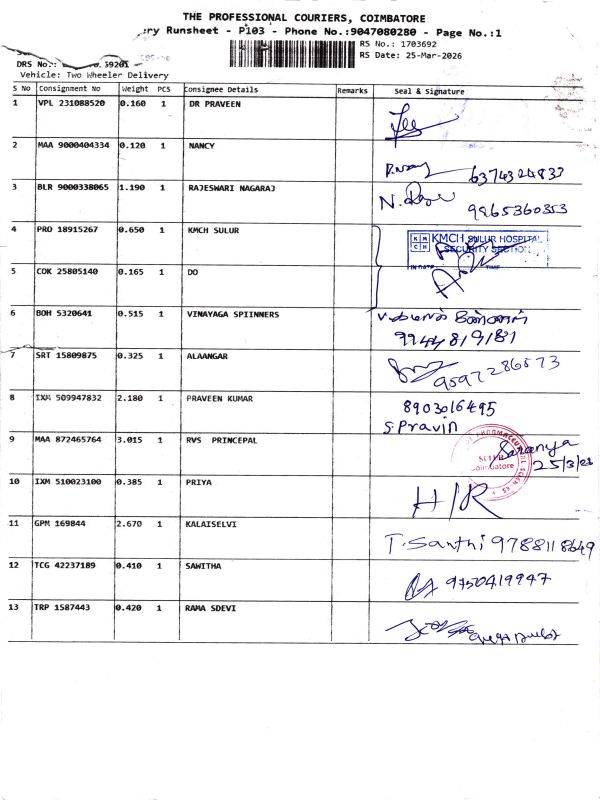 THE PROFESSIONAL COURIERS, COIMBATORE
ry Runsheet - P103 - Phone No.:9047080280 - Page No.:1
RS No.: 1703692
RS Date: 25-Mar-2026
DRS No.: 59201
Vehicle: Two Wheeler Delivery
S No Consignment No Weight PCS Consignee Details Remarks Seal & Signature
1 VPL 231088520 0.160 1 DR PRAVEEN
2 MAA 9000404334 0.120 1 NANCY
6374324833
3 BLR 9000338065 1.190 1 RAJESWARI NAGARAJ
N.
9965360353
4 PRO 18915267 0.650 1 KMCH SULUR
KMCH SULUR HOSPITAL
SECURITY SECTION
IN DATE TIME
5 COK 25805140 0.165 1 DO
6 BOH 5320641 0.515 1 VINAYAGA SPIINNERS
9944819181
7 SRT 15809875 0.325 1 ALAANGAR
9597286573
8 IXM 509947832 2.180 1 PRAVEEN KUMAR
8903016495
S Pravin
9 MAA 872465764 3.015 1 RVS PRINCEPAL
Saranya
SULUR
Coimbatore
10 IXM 510023100 0.385 1 PRIYA
H/R
11 GPM 169844 2.670 1 KALAISELVI
T. Santhi 9788118649
12 TCG 42237189 0.410 1 SAWITHA
9750419947
13 TRP 1587443 0.420 1 RAMA SDEVI